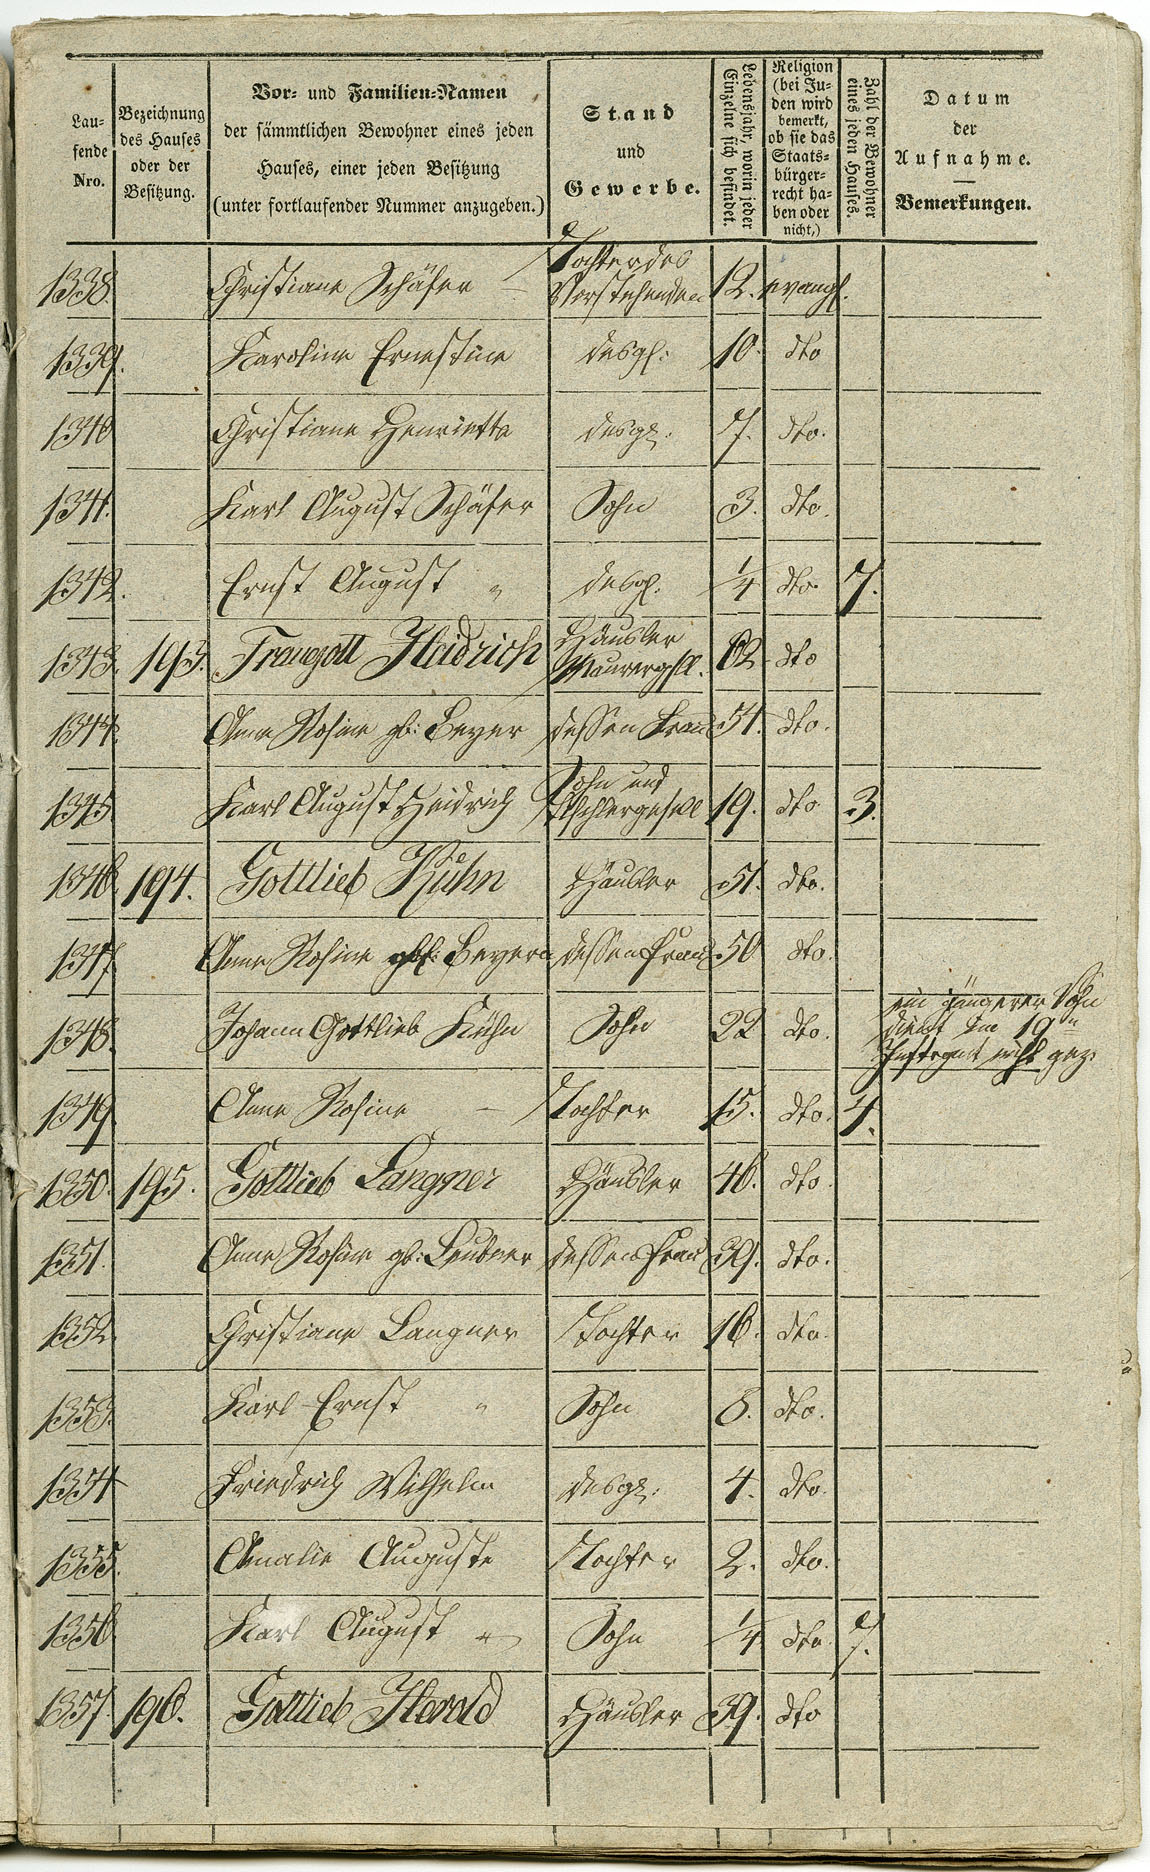 Lau-
fende
Nro.
Bezeichnung
des Hauses
oder der
Besitzung.
Vor- und Familien-Namen
der sämmtlichen Bewohner eines jeden
Hauses, einer jeden Besitzung
(unter fortlaufender Nummer anzugeben.)
Stand
und
Gewerbe.
Lebensjahr, worin jeder
Einzelne sich befindet.
Religion
(bei Ju-
den wird
bemerkt,
ob sie das
Staats-
bürger-
recht ha-
ben oder
nicht,)
Zahl der Bewohner
eines jeden Hauses.
Datum
der
Aufnahme.
Bemerkungen.
1338. Christiane Schäfer — Tochter des Vorstehenden 12. evangl.
1339. Karoline Ernestine desgl: 10. dto
1340 Christiane Henriette desgl: 7. dto.
1341. Karl August Schäfer Sohn 3. dto.
1342. Ernst August " desgl. 1/4 dto 7.
1343. 193. Traugott Heidrich Häusler Maurergsll. 62 dto
1344. Anne Rosine gb: Beyer dessen Frau 54. dto.
1345 Karl August Heidrich Sohn und Tischlergesell 19. dto 3.
1346 194. Gottlieb Kühn Häusler 51. dto.
1347 Anne Rosine geb: Beyer dessen Frau 50 dto.
1348. Johann Gottlieb Kühn Sohn 22 dto. ein jüngerer Sohn
dient im 19n
1349 Anne Rosine — Tochter 15. dto. 4.
1350. 195. Gottlieb Langner Häusler 46. dto.
1351. Anne Rosine gb: Leubner dessen Frau 39. dto.
1352. Christiane Langner Tochter 16. dto.
1353. Karl Ernst " Sohn 8. dto.
1354 Friedrich Wilhelm desgl: 4. dto.
1355. Amalie Auguste Tochter 2. dto.
1356 Karl August " Sohn 1/4 dto 7.
1357. 196. Gottlieb Herold Häusler 39. dto